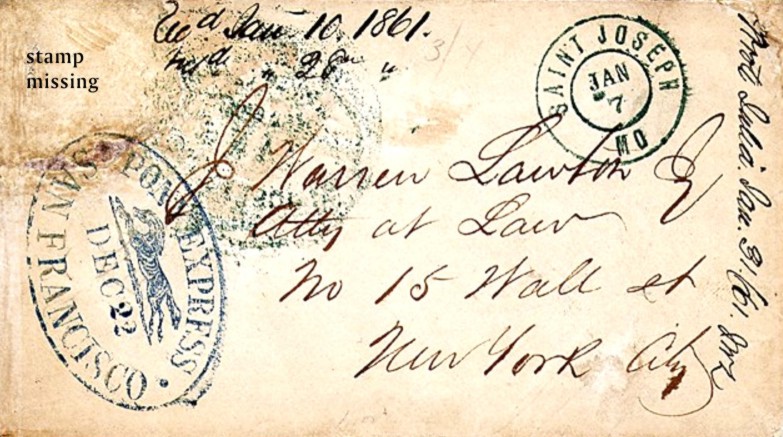 Jan 10. 1861.
" 28 "
stamp
missing
SAINT JOSEPH
JAN
7
MO
PONY EXPRESS
DEC 22
SAN FRANCISCO
J Warren Lawton
Atty at Law
No 15 Wall st
New York City
Jan. 31/61.